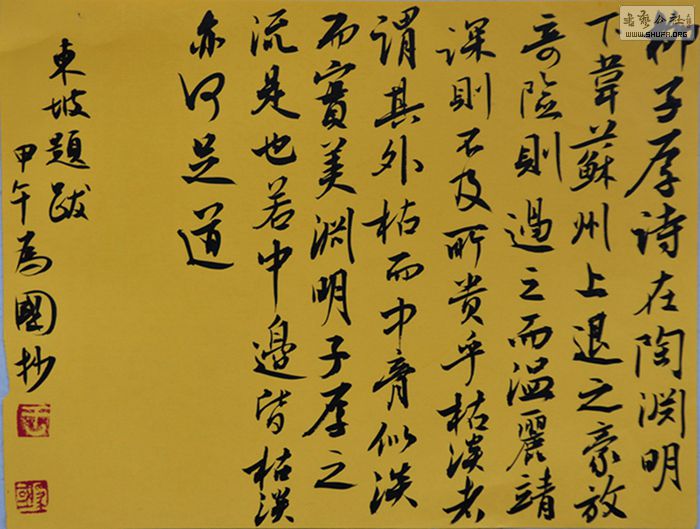 柳子厚诗在陶渊明
下韋蘇州上退之豪放
奇險則過之而温麗靖
深則不及所贵乎枯淡者
謂其外枯而中膏似淡
而實美渊明子厚之
流是也若中邊皆枯淡
亦何足道
東坡題跋
甲午為國抄
WWW.SHUFA.ORG